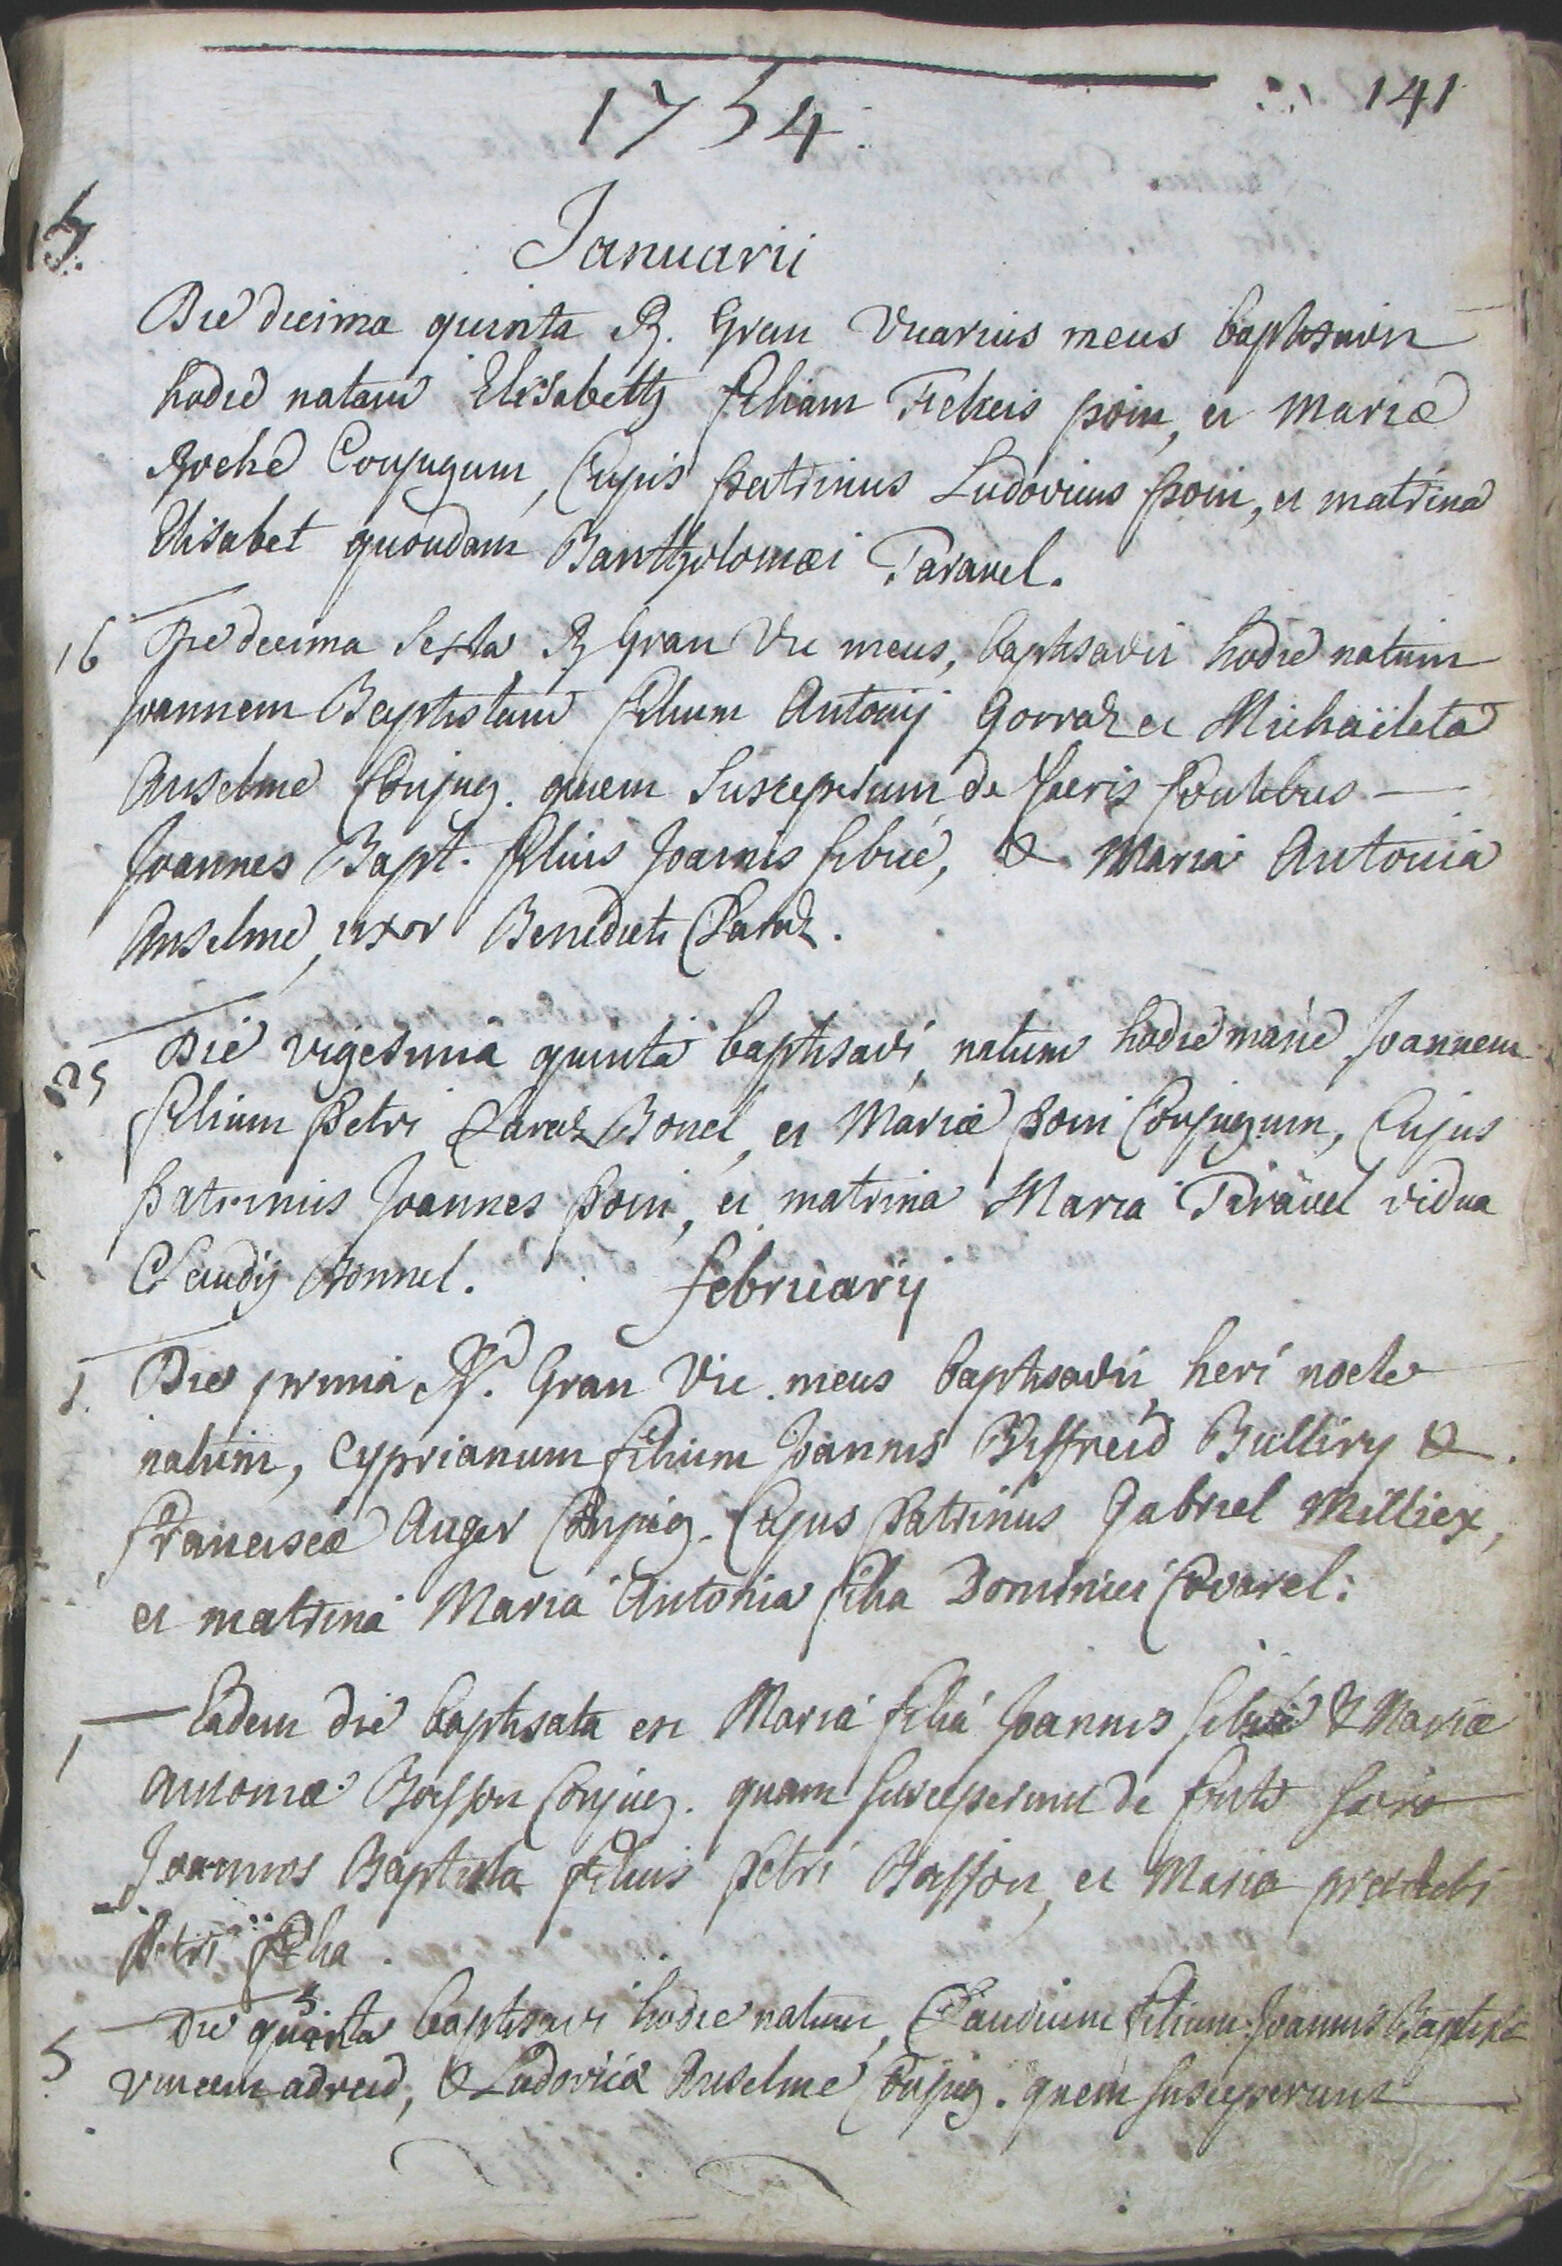 141
1754.
Januarii
15.
Die decima quinta R. Gran Vicarius meus baptisavit
hodie natam Elisabeth filiam Fidelis poin, et Mariæ
Roche Conjugum, Cujus patrinus Ludovicus poin, et matrina
Elisabet quondam Bartholomæi Paravel.
16 Die decima sexta R Gran Vic meus, baptisavit hodie natum
Joannem Baptistam filium Antonij Gorraz et Michaëleta
Anselme Conjug. quem Susceperunt de sacris fontibus
Joannes Bapt. filius Joannis sibué, & Maria Antonia
Anselme, uxor Benedicti Claraz.
25 Die vigesima quinta baptisavi, natum hodie mane Joannem
filium Petri Claraz Bonel, et Mariæ poin Conjugum, Cujus
patrinus Joannes poin, et matrina Maria Paravel vidua
Claudij Bonnel.
februarij
1. Die prima Rd. Gran Vic. meus baptisavit, heri nocte
natum, Cyprianum filium Joannis Biffreid Bulliry &
Franciscæ Auger Conjug. Cujus patrinus Gabriel Milliex,
et matrina Maria Antonia filia Dominici Covarel.
1 Eadem die baptisata est Maria filia Joannis sibué & Mariæ
Antoniæ Bosson Conjug. quam susceperunt de fonte sacro
Joannes Baptista filius petri Bosson, et Maria prædicti
Petri filia.
5 Die quinta baptisavi hodie natum, Claudium filium Joannis Baptistæ
Vincem adreid, & Ludovicæ Anselme Conjug. quem susceperunt